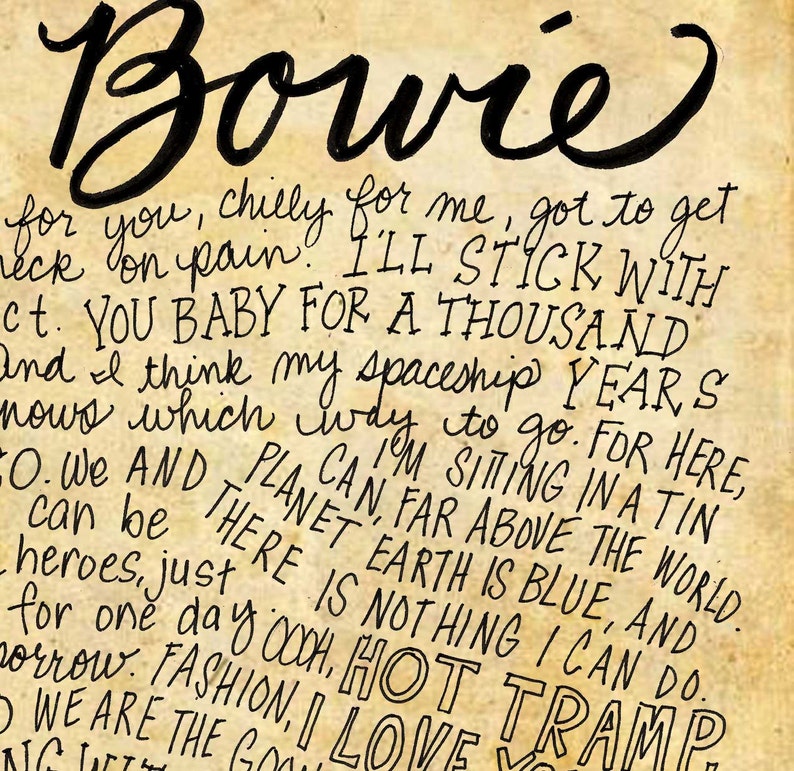 Bowie
for you, chilly for me, got to get
on pain. I'LL STICK WITH
ct. YOU BABY FOR A THOUSAND
and I think my spaceship YEARS
nows which way to go. FOR HERE,
GO. We AND PLANET I'M SITTING IN A TIN
can be CAN, FAR ABOVE THE WORLD.
heroes, just EARTH IS BLUE, AND
for one day. THERE IS NOTHING I CAN DO.
morrow. FASHION, OOOH, HOT TRAMP,
WE ARE THE GOON I LOVE YO